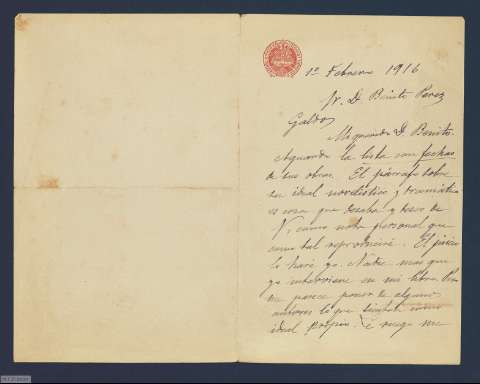 1º Febrero 1916
Sr. D. Benito Perez
Galdos
Mi querido D. Benito.
Aguardo la lista con fechas
de sus obras. El párrafo sobre
su ideal novelistico y dramático
es cosa que deseaba y deseo de
V, como nota personal que
como tal reproduciré. El juicio
lo haré yo. Nadie mas que
yo interviene en mi libro
me parece poner de algunos
autores lo que sienten como
ideal propio. Le ruego me